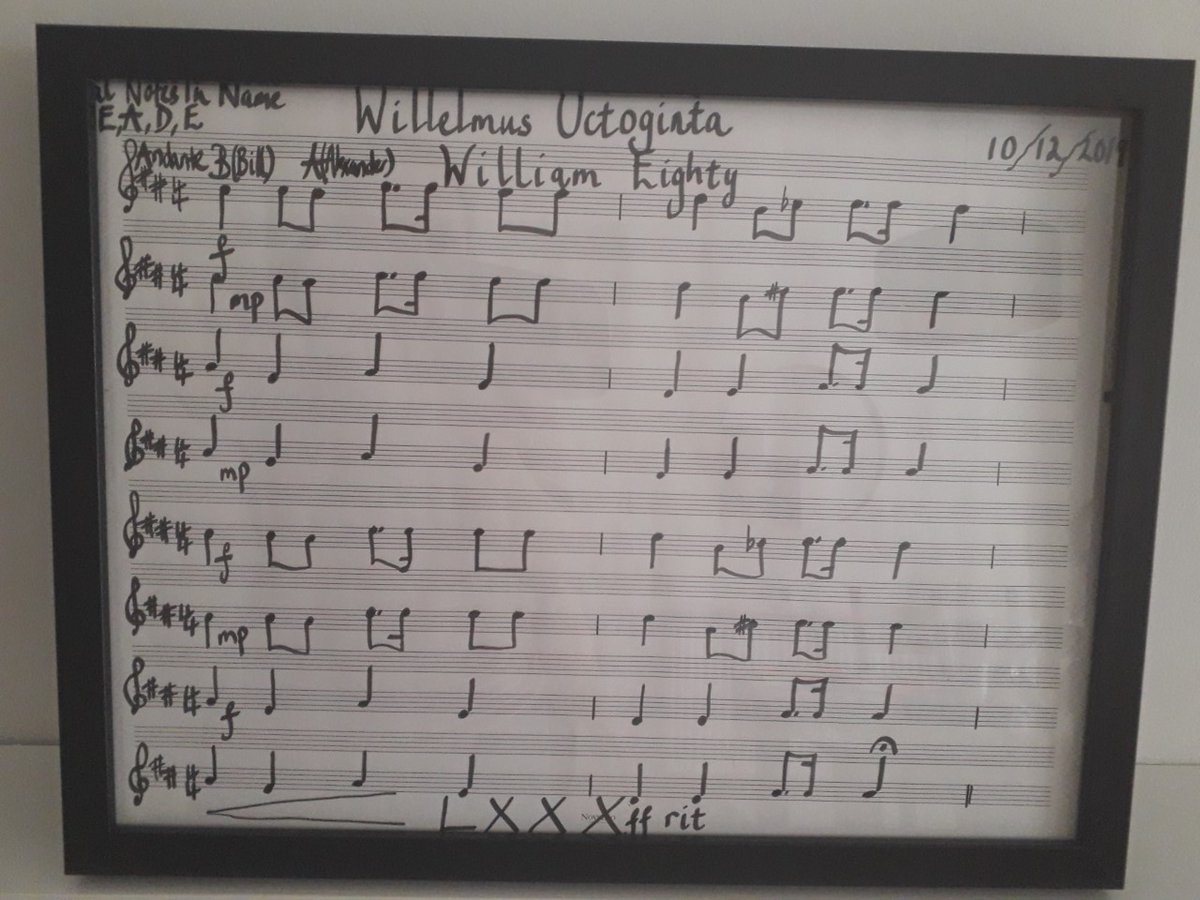 Notes In Name
E, A, D, E
Willelmus Uctoginta
10/12/201
Andante B(Bill) A(Alexander)
William Eighty
f
mp
f
mp
f
mp
f
L X X X ff rit